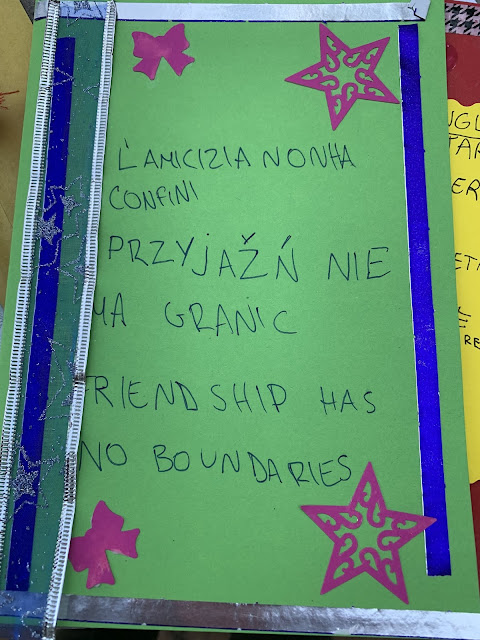 L'AMICIZIA NON HA
CONFINI
PRZYJAŹŃ NIE
MA GRANIC
FRIENDSHIP HAS
NO BOUNDARIES